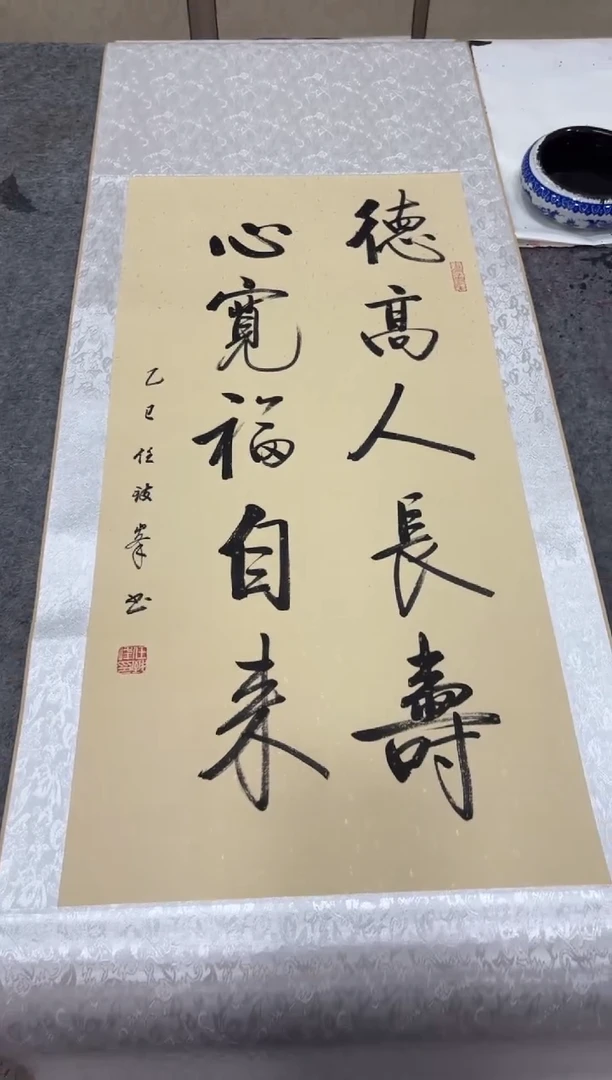 德高人長壽
心寬福自来
乙巳任被峯书